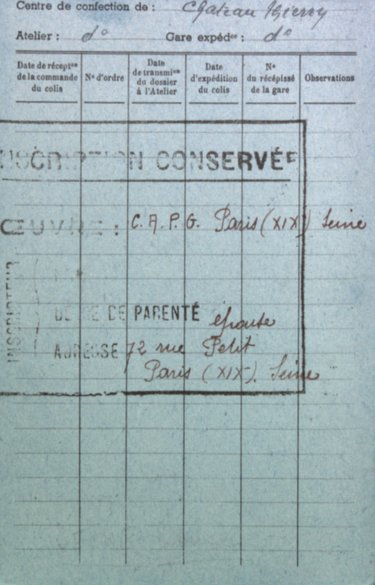 Centre de confection de : Chateau Thierry
Atelier : do Gare expédce : do
Date de récepton de la commande du colis
No d'ordre
Date de transmion du dossier à l'Atelier
Date d'expédition du colis
No du récépissé de la gare
Observations
INSCRIPTION CONSERVÉE
ŒUVRE : C. A. P. G. Paris (XIX) Seine
INSCRIPTEUR
DE PARENTÉ épouse
ADRESSE 72 rue Petit
Paris (XIX). Seine